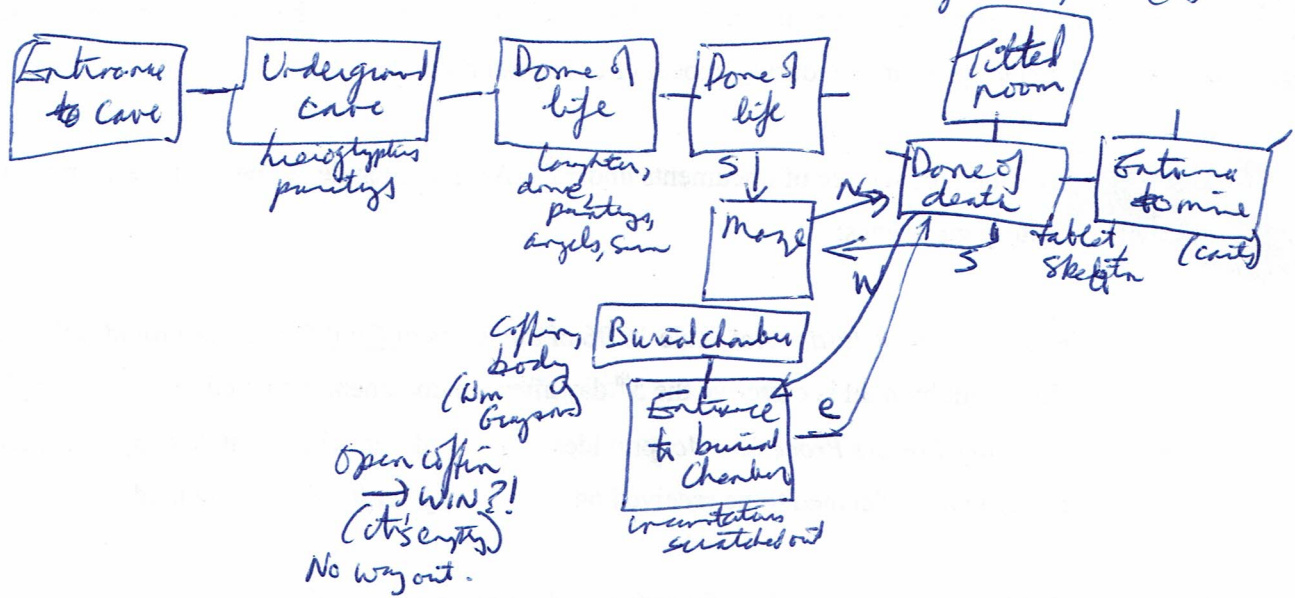 Entrance
to Cave
Underground
cave
hieroglyphs
paintings
Dome of
life
laughter,
dome,
paintings,
angels, sun
Dome of
life
S
Maze
N
Tilted
room
Dome of
death
tablet,
skeleton
S
W
Entrance
to mine
(carts)
Burial chamber
Coffin,
body
(Wm
Grayson)
Entrance
to burial
Chamber
e
incantations
scratched out
Open coffin
→ WIN?!
(it's empty)
No way out.